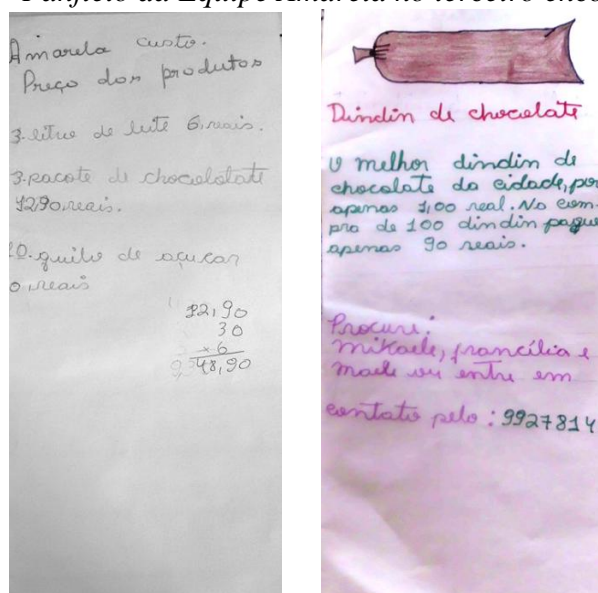 Panfleto da Equipe Amarela no terceiro
Amarela custo.
Preço dos produtos
3. litru de leite 6, reais.
3. pacote de chocolotate
12,90 reais.
quilo de açucar
0, reais
12,90
30
× 6
48,90
Dindin de chocolate
O melhor dindin de
chocolate da cidade, por
apenas 1,00 real. Na com-
pra de 100 dindin pague
apenas 90 reais.
Procure:
mikaele, francília e
ou entre em
contato pelo: 9927814